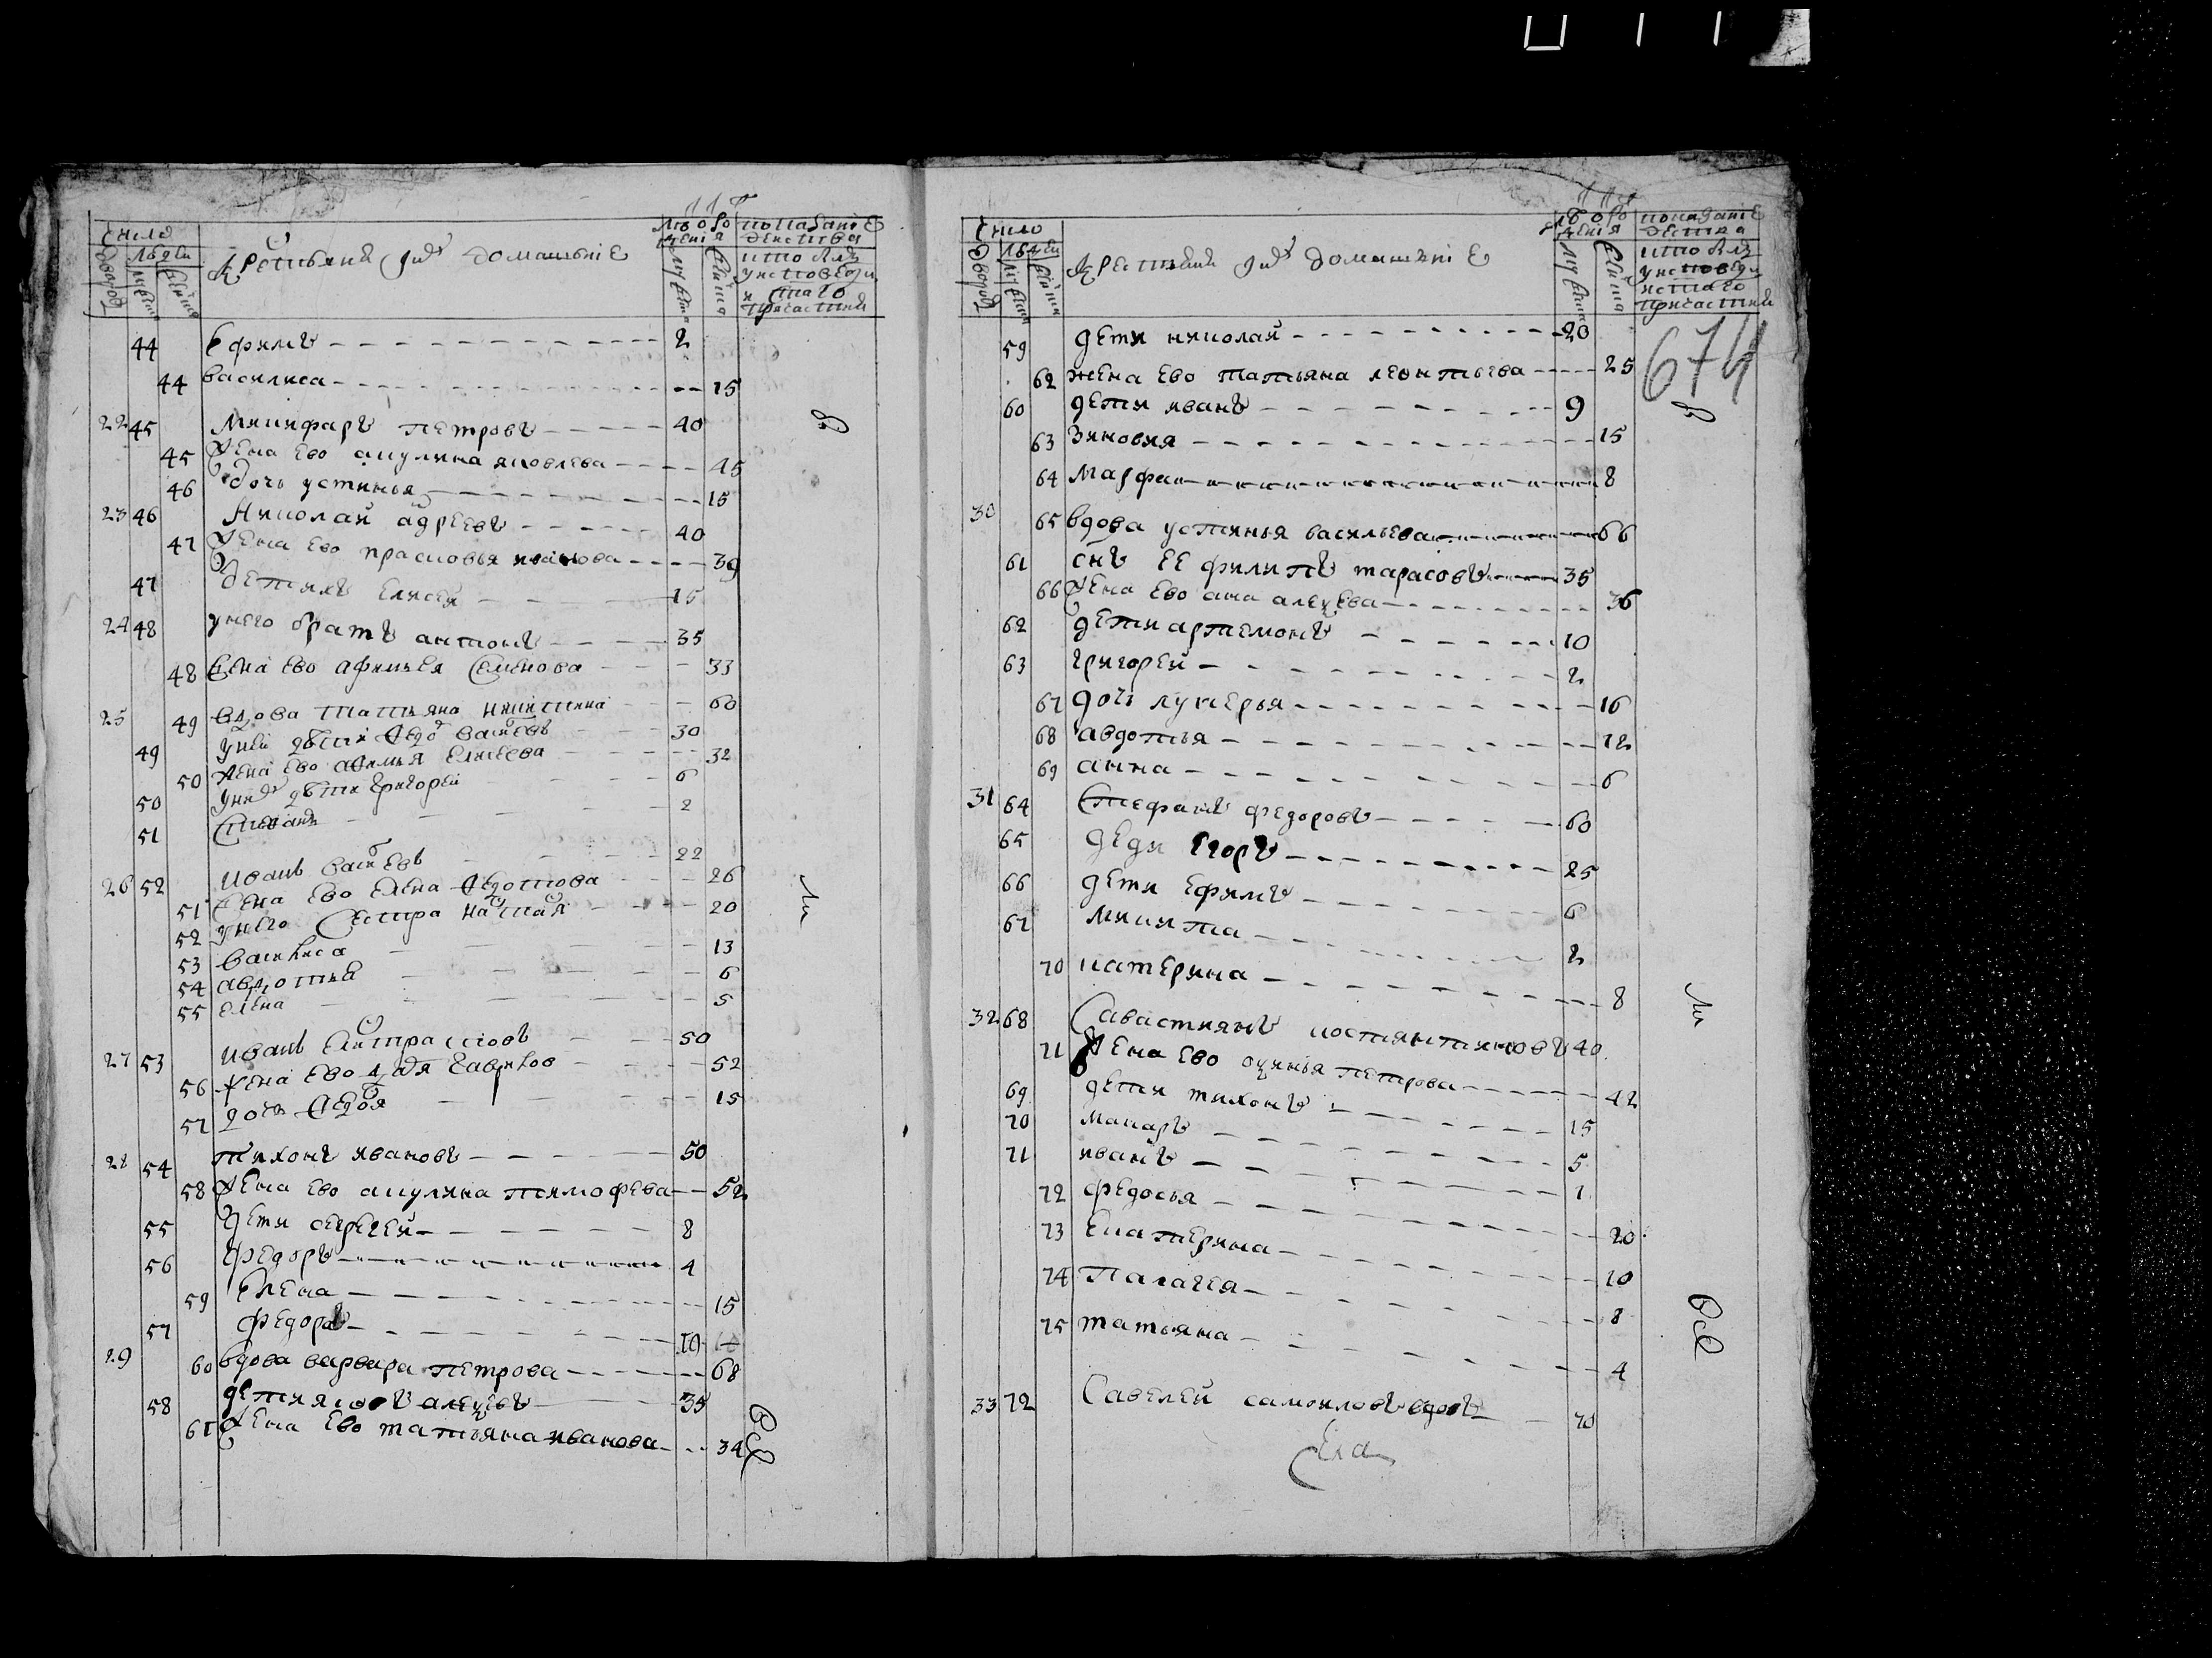 число
людей
Крестьяня и их домашъніе
лѣ о ро
ждения
показаніе
действа
кто былъ
у исповеди
и святаго
причастия
44 Ефимъ 2
44 василиса 15
22 45 Никифаръ петровъ 40
45 Жена ево акулина яковлева 45
46 дочь устинья 15
23 46 Николай адреевъ 40
47 Жена ево прасковья иванова 39
47 Елисей 15
24 48 у него братъ антонъ 35
48 Жена ево афимья Семенова 33
25 49 вдова татьяна никитина 60
49 30
50 Жена ево афимья Елисеева 32
50 у них дѣти Григорей 6
51 Степанъ 2
26 52 Иванъ 22
51 Жена ево Елена Федотова 26
52 у него Сестра 20
53 василиса 13
54 авдотья 6
55 Елена 5
27 53 иванъ 50
56 жена ево 52
57 дочь 15
28 54 тихонъ ивановъ 50
58 Жена ево акулина тимофева 52
55 Дети сергей 8
56 Федоръ 4
59 Елена 15
57 Федоръ 10
29 60 вдова варвара петрова 68
58 дети 35
61 Жена ево татьяна иванова 34
число
людей
Крестьяни и их домашъніе
лѣ о ро
ждения
показаніе
действа
кто былъ
у исповеди
и святаго
причастия
674
59 дети николай 20
62 жена ево татьяна леонтьева 25
60 дети иванъ 9
63 Зиновия 15
64 Марфа 8
30 65 вдова устинья васильева 66
61 снъ ее филипъ тарасовъ 35
66 Жена ево ана 36
62 дети артемонъ 10
63 григорей 2
67 дочь лукерья 16
68 авдотья 12
69 анна 6
31 64 Стефанъ федоровъ 60
65 деди Егоръ 25
66 дети ефимъ 6
67 Микита 2
70 катерина 8
32 68 Савастиянъ костянтиновъ 40
71 Жена ево петрова 42
69 дети тихонъ 15
70 макаръ 5
71 иванъ 1
72 федосья 20
73 Екатерина 10
74 Палагея 8
75 татьяна 4
33 72 Савелей самоиловъ вдовъ 70